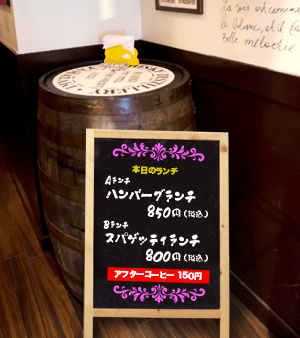 La vie est comme
le blanc, et il fa
Belle mélodie
DISTILLERY
本日のランチ
Aランチ
ハンバーグランチ
850円(税込)
Bランチ
スパゲッティランチ
800円(税込)
アフターコーヒー 150円